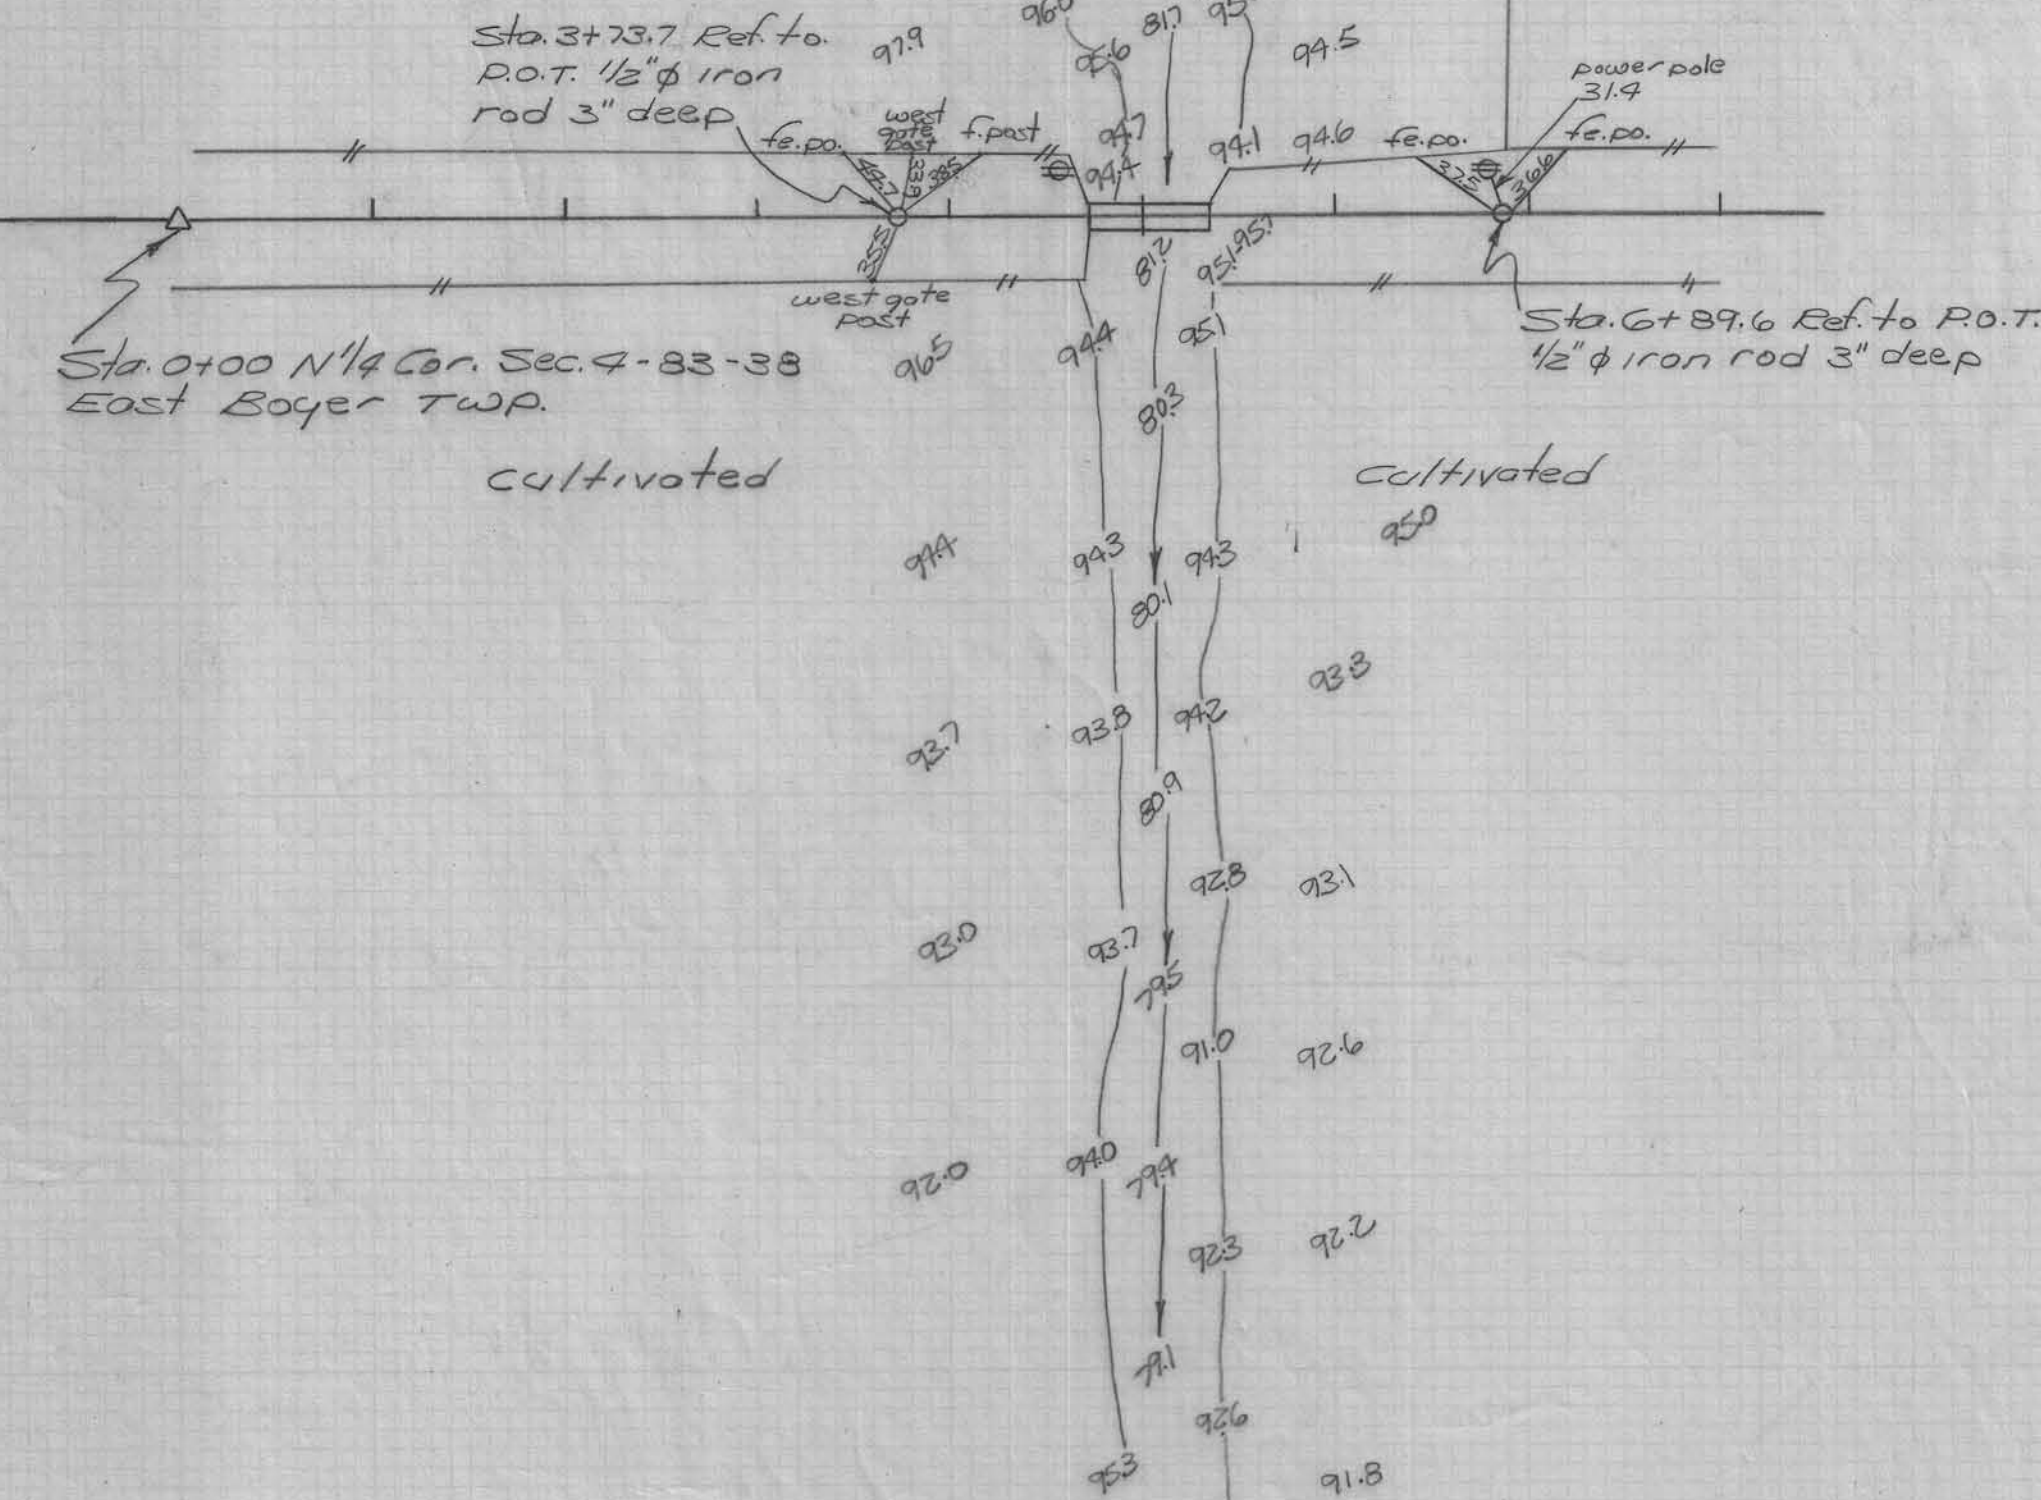 Sta. 3+73.7 Ref. to.
P.O.T. 1/2"φ iron
rod 3" deep
97.9
95.6
81.7
94.5
power pole
31.4
fe.po.
west
gate
post
f.post
94.7
94.4
94.1
94.6
fe.po.
fe.po.
33.9
38.5
37.5
36.6
35.5
81.2
95.1-95.7
west gate
post
Sta. 0+00 N 1/4 Cor. Sec. 4-83-38
East Boyer Twp.
96.5
94.4
95.1
Sta. 6+89.6 Ref. to P.O.T.
1/2"φ iron rod 3" deep
80.3
cultivated
cultivated
95.0
94.3
94.3
80.1
93.3
93.8
94.2
93.7
80.9
92.8
93.1
93.0
93.7
79.5
91.0
92.6
94.0
79.4
92.0
92.3
92.2
79.1
92.6
95.3
91.8